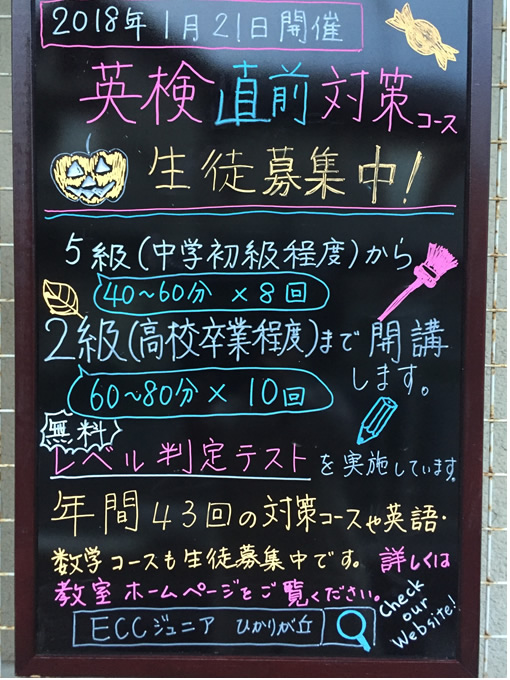 2018年1月21日開催
英検直前対策コース
生徒募集中!
5級(中学初級程度)から
40~60分 × 8回
2級(高校卒業程度)まで開講
します。
60~80分 × 10回
無料
レベル判定テストを実施しています。
年間43回の対策コースや英語・
数学コースも生徒募集中です。詳しくは
教室ホームページをご覧ください。
ECCジュニア ひかりが丘
Check
our
Website!